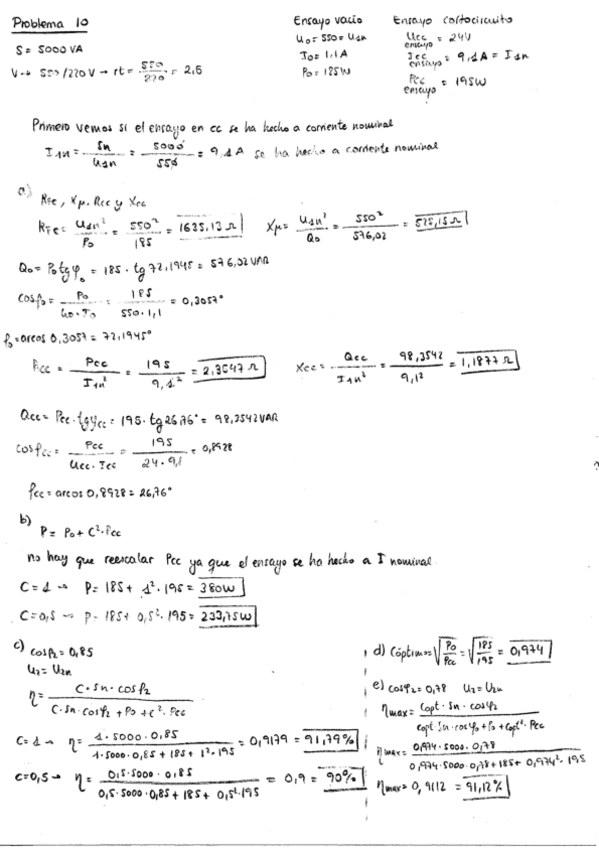 Problema 10
S = 5000 VA
V → 550/220 V → rt = 550/220 = 2,5
Ensayo vacio
U₀ = 550 = U1n
I₀ = 1,1 A
P₀ = 185W
Ensayo cortocircuito
Ucc ensayo = 24V
Icc ensayo = 9,1A = I1n
Pcc ensayo = 195W
Primero vemos si el ensayo en cc se ha hecho a corriente nominal
I1n = Sn/U1n = 5000/550 = 9,1 A se ha hecho a corriente nominal
a)
RFe, Xμ, Rcc y Xcc
RFe = U1n²/P₀ = 550²/185 = 1635,13 Ω
Xμ = U1n²/Q₀ = 550²/576,02 = 525,15 Ω
Q₀ = P₀ tgφ₀ = 185 · tg 72,1945 = 576,02 VAR
cosφ₀ = P₀/U₀·I₀ = 185/550·1,1 = 0,3057°
φ₀ = arcos 0,3057 = 72,1945°
Rcc = Pcc/I1n² = 195/9,1² = 2,3547 Ω
Xcc = Qcc/I1n² = 98,3542/9,1² = 1,1877 Ω
Qcc = Pcc · tgφcc = 195 · tg 26,76° = 98,3542 VAR
cosφcc = Pcc/Ucc·Icc = 195/24·9,1 = 0,8928
φcc = arcos 0,8928 = 26,76°
b)
P = P₀ + C²·Pcc
no hay que reescalar Pcc ya que el ensayo se ha hecho a I nominal.
C=1 → P = 185 + 1² · 195 = 380W
C=0,5 → P = 185 + 0,5² · 195 = 233,75W
c) cosφ₂ = 0,85
U₂ = U2n
η = C·Sn·cosφ₂/C·Sn·cosφ₂ + P₀ + C²·Pcc
C=1 → η = 1·5000·0,85/1·5000·0,85 + 185 + 1²·195 = 0,9179 = 91,79%
C=0,5 → η = 0,5·5000·0,85/0,5·5000·0,85 + 185 + 0,5²·195 = 0,9 = 90%
d) Cóptimo = √P₀/Pcc = √185/195 = 0,974
e) cosφ₂ = 0,78 U₂ = U2n
ηmax = Copt·Sn·cosφ₂/Copt·Sn·cosφ₂ + P₀ + Copt²·Pcc
ηmax = 0,974·5000·0,78/0,974·5000·0,78 + 185 + 0,974²·195
ηmax = 0,9112 = 91,12%